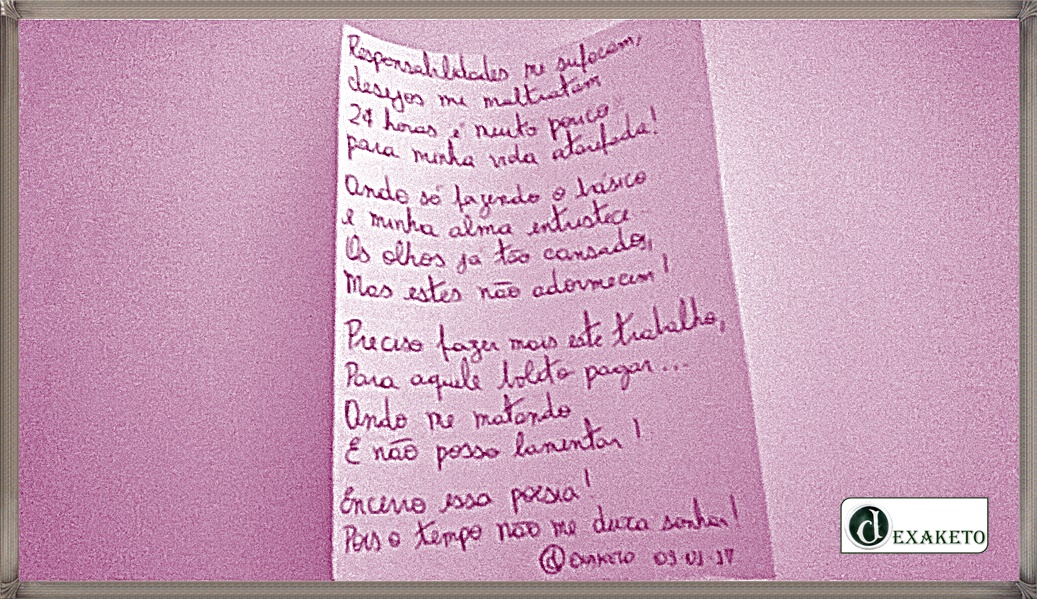 Responsabilidades me sufocam,
desejos me maltratam
24 horas é muito pouco
para minha vida atarefada!
Ando só fazendo o básico
e minha alma entristece...
Os olhos já tão cansados,
Mas estes não adormecem!
Preciso fazer mais este trabalho,
Para aquele boleto pagar...
Ando me matando
E não posso lamentar!
Encerro essa poesia!
Pois o tempo não me deixa sonhar!
DEXAKETO 09-01-17
DEXAKETO